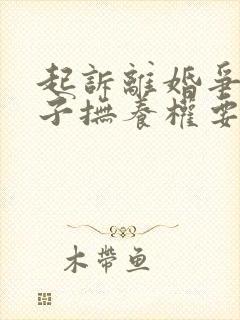 起訴離婚爭
子撫養權要
木帶魚